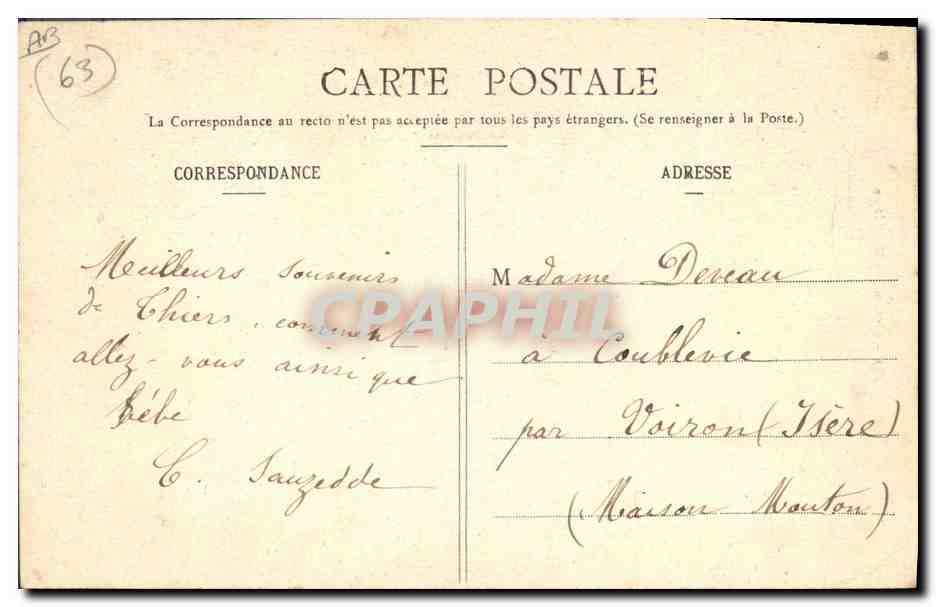 AB
(63)
CARTE POSTALE
La Correspondance au recto n'est pas acceptée par tous les pays étrangers. (Se renseigner à la Poste.)
CORRESPONDANCE
Meilleurs souvenirs
de Thiers, comment
allez-vous ainsi que
bébé
C. Sauzedde
ADRESSE
Madame Deveau
à Coublevie
par Voiron (Isère)
(Maison Mouton)
CPAPHIL